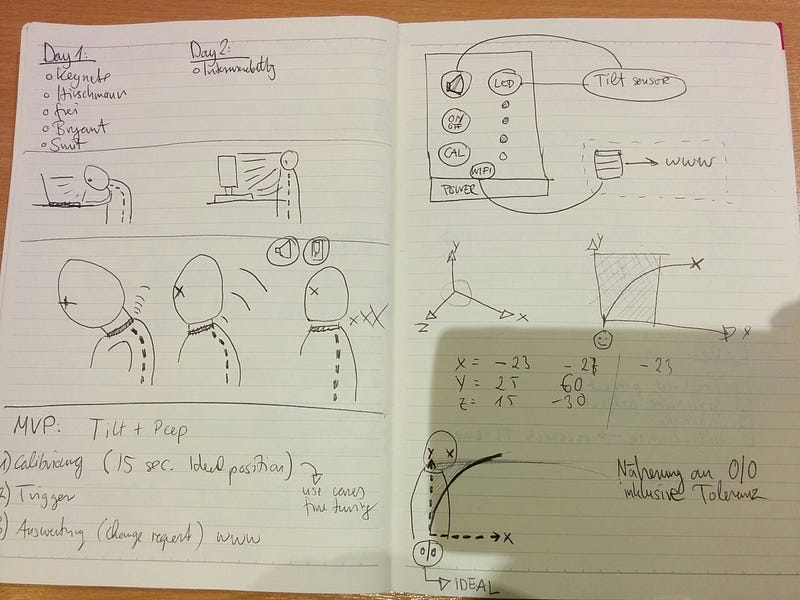 Day 1:
o Keynote
o Hirschmann
o frei
o Bryant
o Smit
Day 2:
MVP: Tilt + Peep
1) Calibrierung (15 sec. Ideal position)
use cases
fine tuning
2) Trigger
3) Auswertung (change request) www
LCD
Tilt sensor
ON/OFF
CAL
WIFI
POWER
www
Y
Z
X
Y
X
X
X = -23 -23
Y = 25 60
Z = 15 -30
Näherung an 0/0
inklusive Toleranz
X
0/0
IDEAL